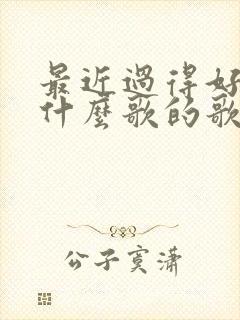 最近過得好
什麼歌的歌
公子寞瀟